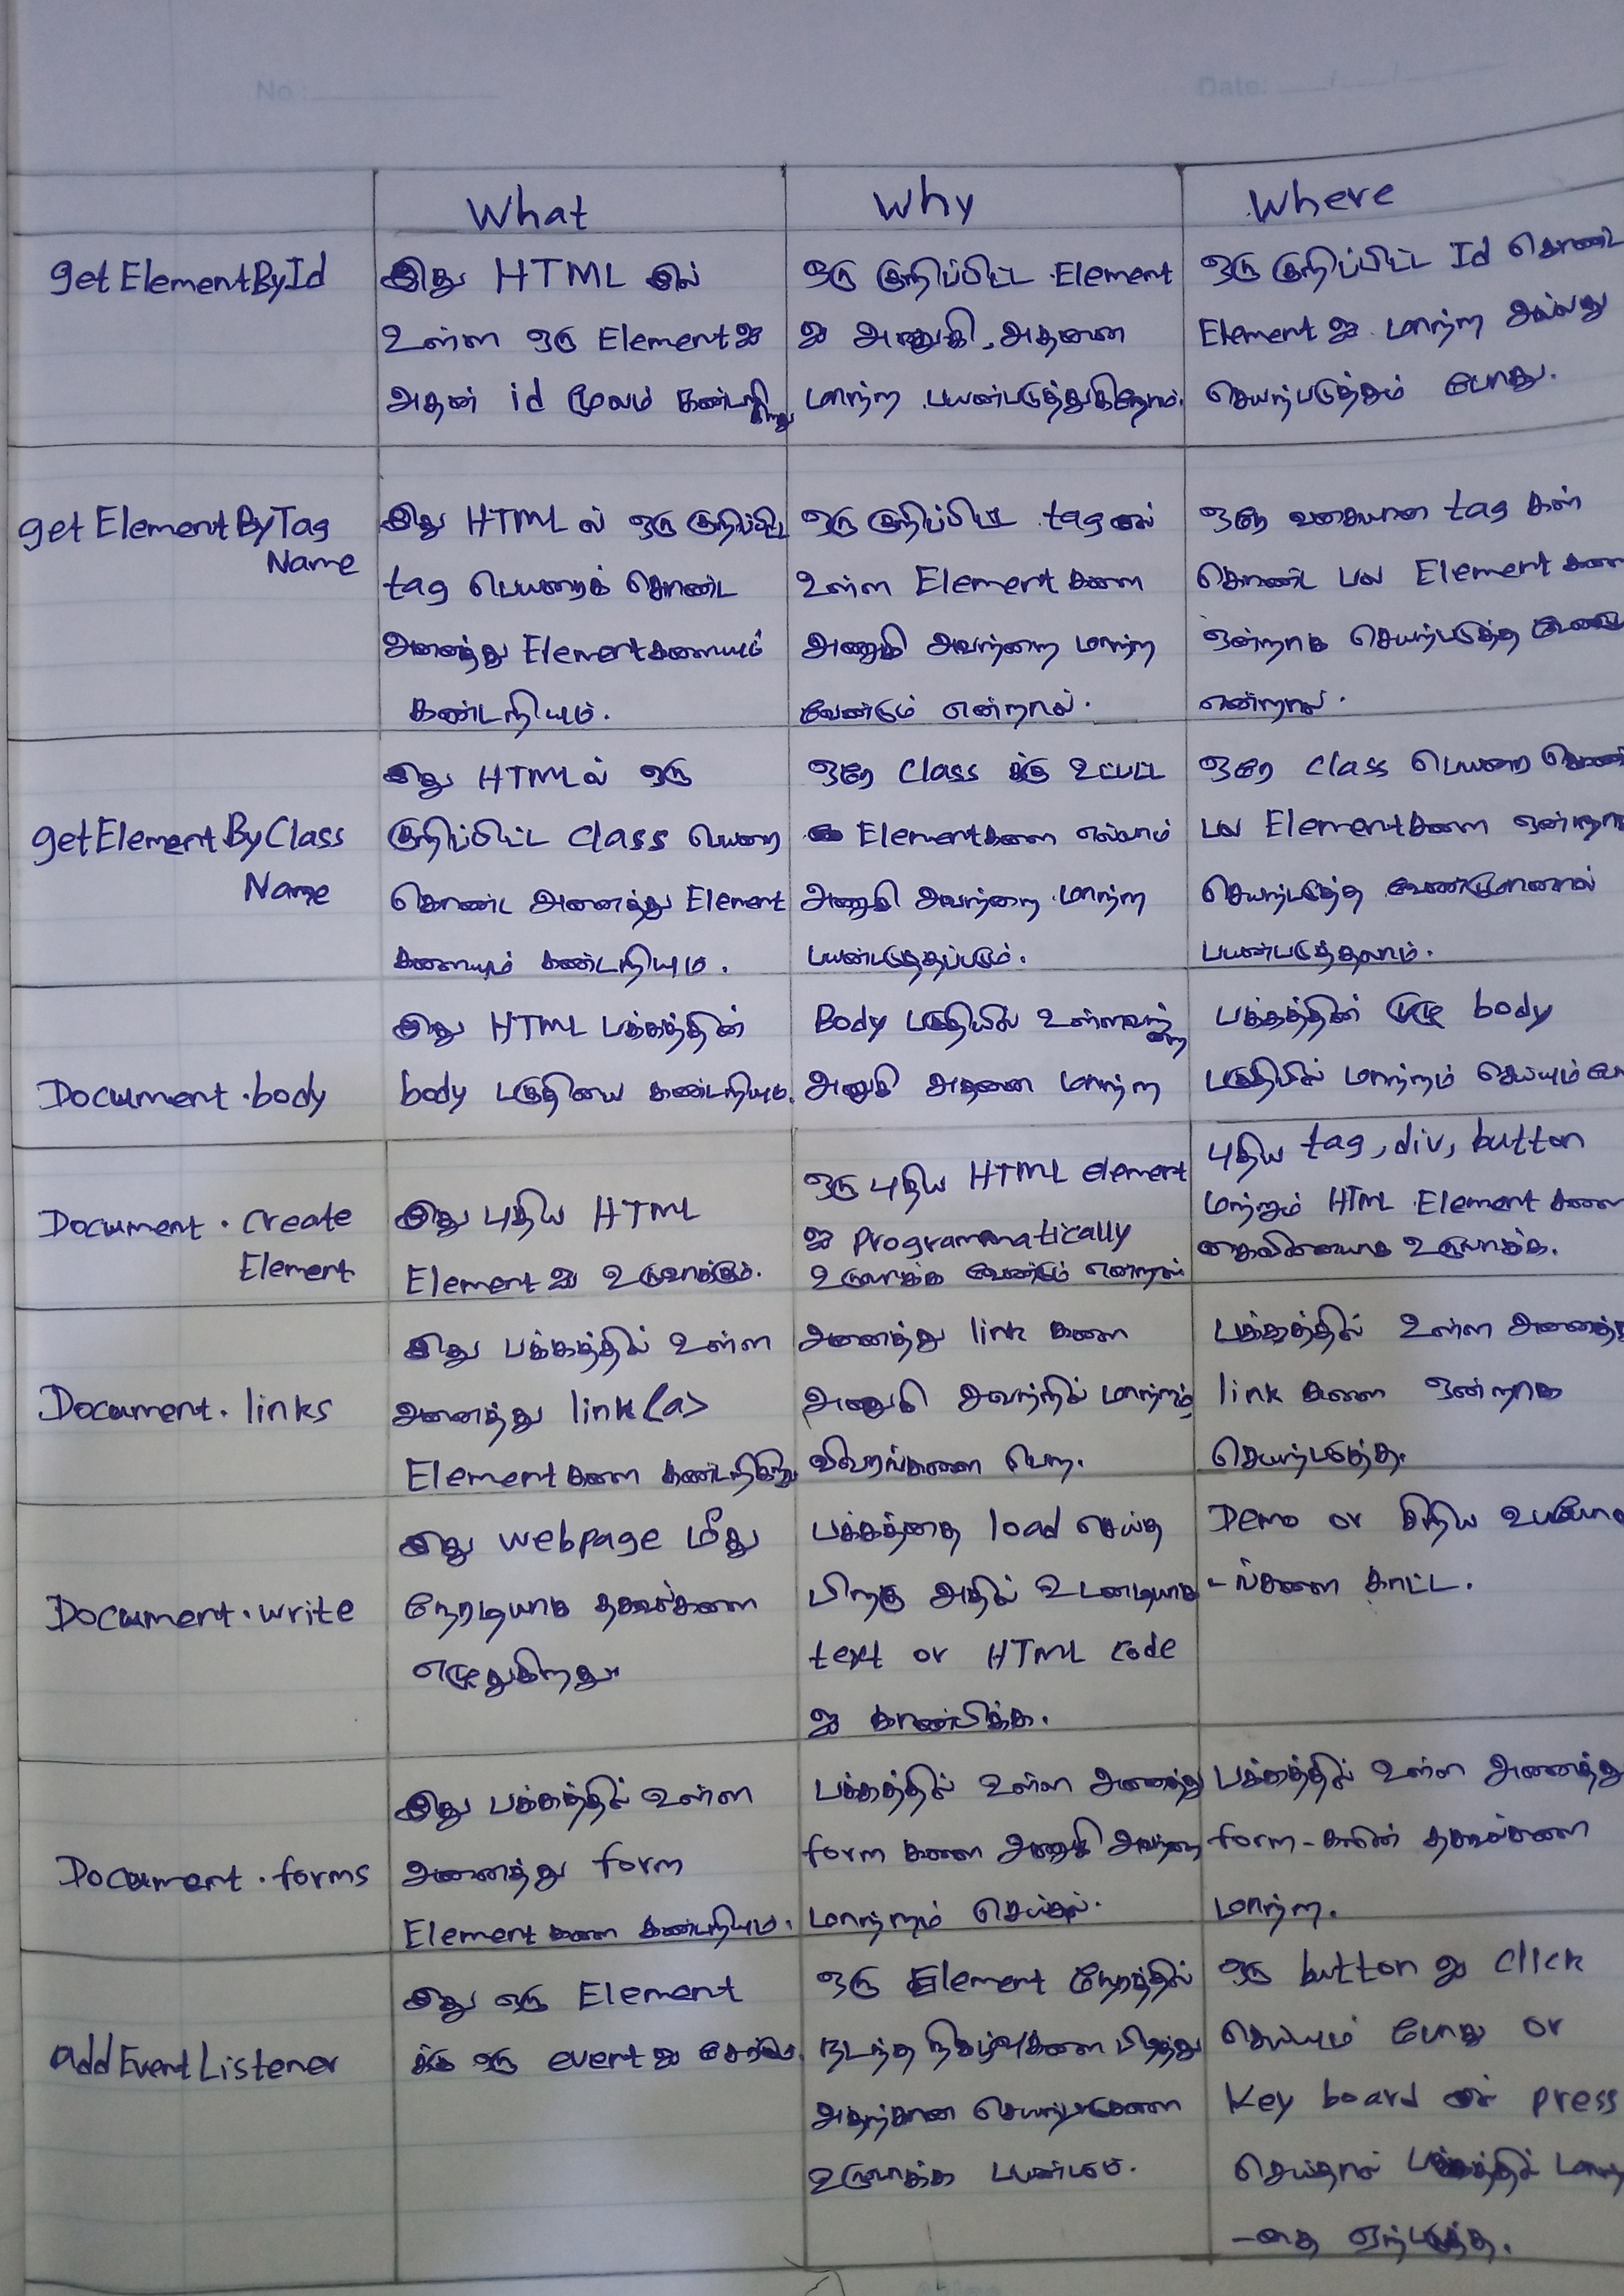 No : Date: / /
What Why Where
getElementById
இது HTML இல்
உள்ள ஒரு Element ஐ
அதன் id மூலம் கண்டறிகிறது
ஒரு குறிப்பிட்ட Element
ஐ அணுகி, அதனை
மாற்ற பயன்படுத்துகிறோம்.
ஒரு குறிப்பிட்ட Id கொண்ட
Element ஐ மாற்ற அல்லது
செயற்படுத்தும் போது.
getElementByTag
Name
இது HTML ல் ஒரு குறிப்பிட்ட
tag பெயரைக் கொண்ட
அனைத்து Elementகளையும்
கண்டறியும்.
ஒரு குறிப்பிட்ட tag இல்
உள்ள Element களை
அணுகி அவற்றை மாற்ற
வேண்டும் என்றால்.
ஒரே வகையான tag கள்
கொண்ட பல Element களை
ஒன்றாக செயற்படுத்த
என்றால்.
getElementByClass
Name
இது HTML ல் ஒரு
குறிப்பிட்ட class பெயரை
கொண்ட அனைத்து Element
களையும் கண்டறியும்.
ஒரே class க்கு உட்பட்ட
Elementகளை எல்லாம்
அணுகி அவற்றை மாற்ற
பயன்படுத்தப்படும்.
ஒரே class பெயரை
பல Elementகளை
செயற்படுத்த வேண்டுமானால்
பயன்படுத்தலாம்.
Document.body
இது HTML பக்கத்தின்
body பகுதியை கண்டறியும்.
Body பகுதியில் உள்ளவற்றை
அணுகி அதனை மாற்ற
பக்கத்தின் முழு body
பகுதியில் மாற்றம் செய்யும்
Document. Create
Element
இது புதிய HTML
Element ஐ உருவாக்கும்.
ஒரு புதிய HTML element
ஐ Programmatically
உருவாக்க வேண்டும் என்றால்
புதிய tag, div, button
மற்றும் HTML Element களை
உருவாக்க.
Document. links
இது பக்கத்தில் உள்ள
அனைத்து link <a>
Element களை கண்டறிகிறது
அனைத்து link களை
அணுகி அவற்றில் மாற்றம்,
விவரங்களை பெற.
பக்கத்தில் உள்ள
link களை ஒன்றாக
செயற்படுத்த.
Document.write
இது webpage மீது
நேரடியாக தகவல்களை
எழுதுகிறது
பக்கத்தை load செய்த
பிறகு அதில் உடனடியாக
text or HTML code
ஐ காண்பிக்க.
Demo or சிறிய
-ங்களை காட்ட.
Document.forms
இது பக்கத்தில் உள்ள
அனைத்து form
Element களை கண்டறியும்.
பக்கத்தில் உள்ள அணைத்து
form களை அணுகி அவற்றை
மாற்றம் செய்தல்.
பக்கத்தில் உள்ள அணைத்து
form-களின் தகவல்களை
மாற்ற.
addEventListener
இது ஒரு Element
க்கு ஒரு event ஐ
ஒரு Element நேரத்தில்
நடந்த நிகழ்வுகளை பிடித்து
அதற்கான
உருவாக்க
ஒரு button ஐ click
செய்யும் போது or
Key board press
செய்தால் பக்கத்தில்
-தை ஏற்படுத்த.